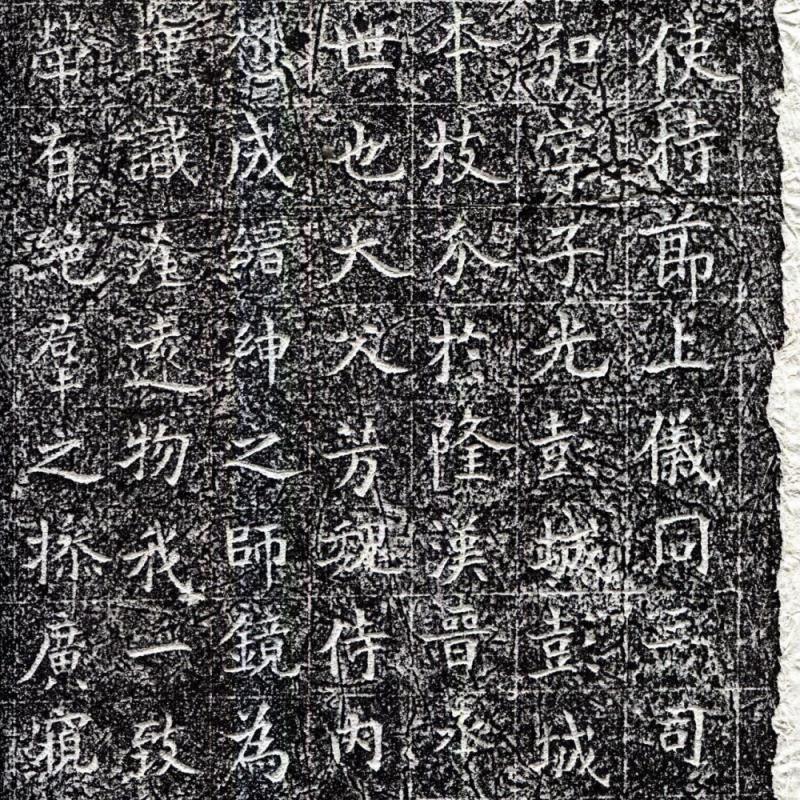 使持節上儀同三司
弘字子光彭城彭城
本枝分於隆漢晉承
世也大父芳魏侍內
成縉紳之師鏡為
識遠物我一致
有絕羣之廣窺